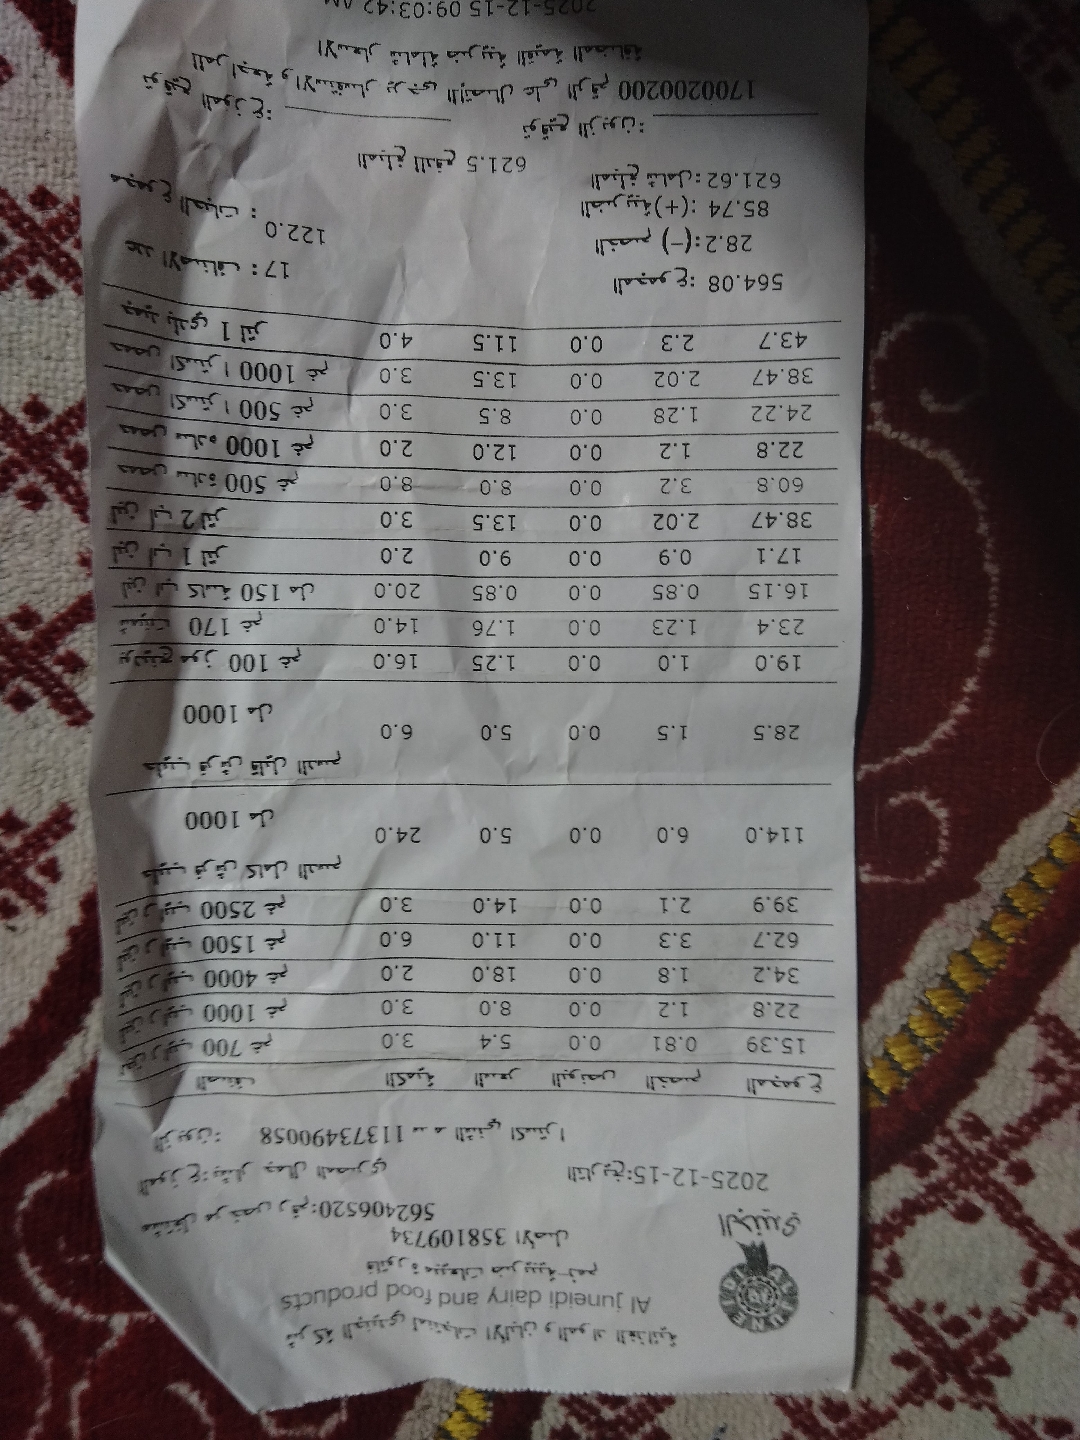 شركة الجنيدي لمنتجات الألبان والمواد الغذائية
Al juneidi dairy and food products
JUNEIDI
الجنيدي
فاتورة مبيعات ضريبية رقم
358109734 الأصل
مشتغل مرخص رقم:562406520
الموزع: جمال المصري التاريخ:2025-12-15
الزبون: 11373490058 اكسترا
الصنف الكمية السعر البونص الخصم المجموع
لبن رايب 700 غم 3.0 5.4 0.0 0.81 15.39
لبن رايب 1000 غم 3.0 8.0 0.0 1.2 22.8
لبن رايب 4000 غم 2.0 18.0 0.0 1.8 34.2
لبن رايب 1500 غم 6.0 11.0 0.0 3.3 62.7
لبن رايب 2500 غم 3.0 14.0 0.0 2.1 39.9
حليب فرش كامل الدسم
1000 مل 24.0 5.0 0.0 6.0 114.0
حليب فرش قليل الدسم
1000 مل 6.0 5.0 0.0 1.5 28.5
بودينج موز 100 غم 16.0 1.25 0.0 1.0 19.0
شمينت 170 غم 14.0 1.76 0.0 1.23 23.4
لبن اب كاسة 150 مل 20.0 0.85 0.0 0.85 16.15
لبن اب 1 لتر 2.0 9.0 0.0 0.9 17.1
لبن اب 2 لتر 3.0 13.5 0.0 2.02 38.47
حمص سادة 500 غم 8.0 8.0 0.0 3.2 60.8
حمص سادة 1000 غم 2.0 12.0 0.0 1.2 22.8
حمص اكسترا 500 غم 3.0 8.5 0.0 1.28 24.22
حمص اكسترا 1000 غم 3.0 13.5 0.0 2.02 38.47
جميد بلدي 1 لتر 4.0 11.5 0.0 2.3 43.7
عدد الأصناف : 17 المجموع: 564.08
مجموع الحبات : 122.0 الخصم (-):28.2
الضريبة(+): 85.74
المبلغ شامل: 621.62 المبلغ للدفع 621.5
توقيع الموزع: توقيع الزبون:
للمراجعة والاستفسار يرجى الاتصال على الرقم 1700200200
الاسعار شاملة ضريبة القيمة المضافة
2025-12-15 09:03:42 AM